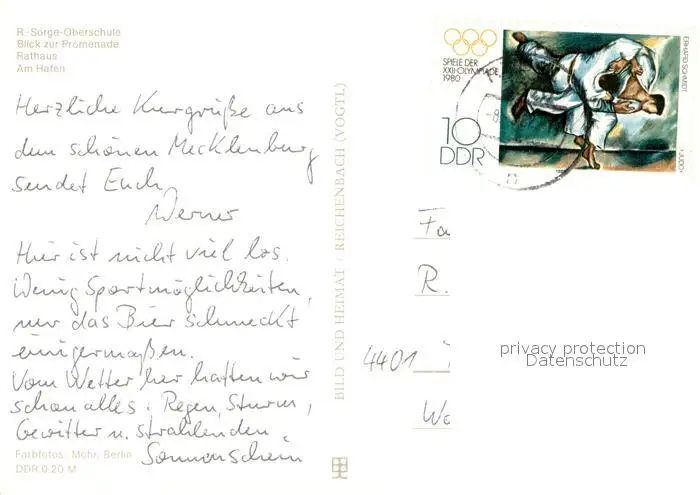 R.-Sorge-Oberschule
Blick zur Promenade
Rathaus
Am Hafen
Herzliche Kurgrüße aus
dem schönen Mecklenburg
sendet Euch
Werner
Hier ist nicht viel los.
Wenig Sportmöglichkeiten,
nur das Bier schmeckt
einigermaßen.
Vom Wetter her hatten wir
schon alles: Regen, Sturm,
Gewitter u. strahlenden
Sonnenschein
Farbfotos: Mohr, Berlin
DDR 0,20 M
BILD UND HEIMAT · REICHENBACH (VOGTL.)
SPIELE DER
XXII. OLYMPIADE
1980
10
DDR
ERHARD SCHMIDT
„JUDO“
Fa
R.
4401
Wa
privacy protection
Datenschutz